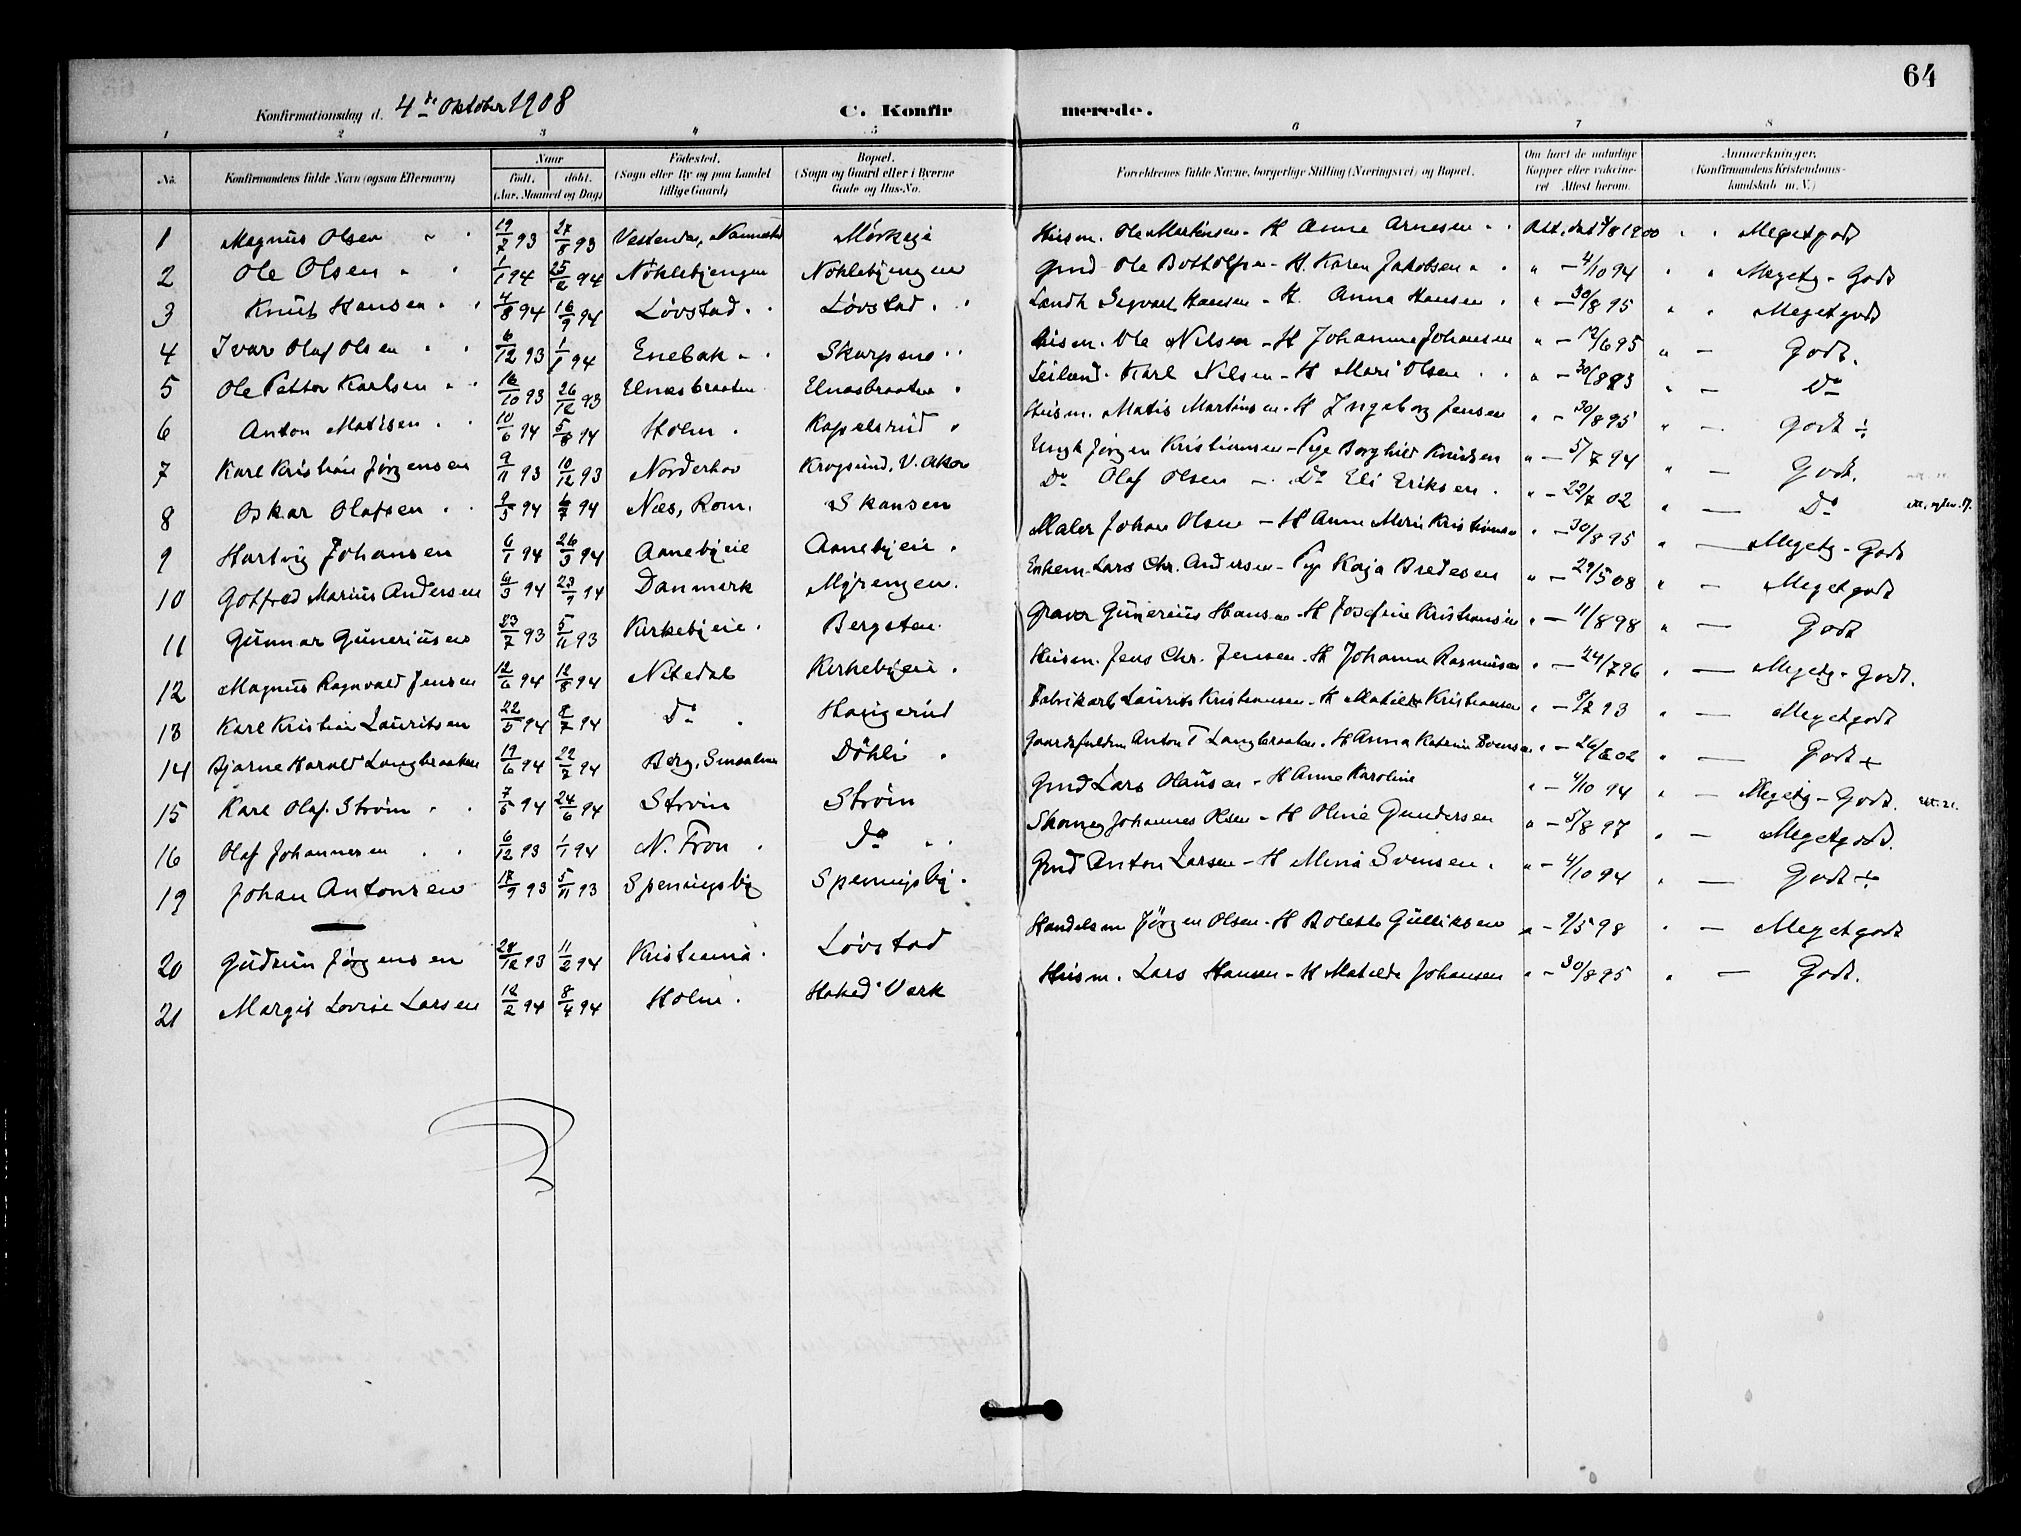 64
Konfirmationsdag d. 4de Oktober 1908 C. Konfirmerede.
1 2 3 4 5 6 7 8
No. Konfirmandens fulde Navn (ogsaa Efternavn) Naar født. døbt. (Aar, Maaned og Dag) Fødested. (Sogn eller By og paa Landet tillige Gaard) Bopæl. (Sogn og Gaard eller i Byerne Gade og Hus-No. Forældrenes fulde Navne, borgerlige Stilling (Næringsvei) og Bopæl. Om havt de naturlige Kopper eller vaksineret Attest herom. Anmerkninger. (Konfirmandens Kristendomskundskab m. V.)
1 Magnus Olsen " " 19/7 93 27/8 93 Vestenden, Mørkeje Husm. Ole Martinsen - H Anne Arnesen " " Att. dat 1900 " " Megetgodt
2 Ole Olsen " " 1/1 94 25/2 94 Nöklebjengen Nöklebjengen Gmd Ole Bottolfsen - H. Karen Jakobsen " " " - 4/10 94 " " Megetg - Godt
3 Knut Hansen " " 4/8 94 16/9 94 Løvstad " " Løvstad " " Landh Segvart Hansen - H. Anna Hansen " " - 30/8 95 " " Megetgodt
4 Ivar Olaf Olsen " " 6/12 93 1/1 94 Enebak " " Skarpsno " " Husm. Ole Nilsen - H Johanne Johansen " - 12/6 95 " - Godt.
5 Ole Petter Karlsen " " 16/10 93 26/12 93 Elnæsbraaten Elnæsbraaten " Leilænd. Karl Nilsen - H Mari Olsen " " " - 30/8 93 " - Do
6 Anton Matisen " " 10/6 94 5/8 94 Holm " Kapelsrud " Husm. Matis Martinsen - H Ingeborg Jensen " - 30/8 95 " - Godt ÷
7 Karl Kristian Jörgensen 9/11 93 10/12 93 Norderhov Krogsund, V. Aker Ungk Jörgen Kristiansen - Pige Borghild Knudsen " - 5/7 94 " - Godt.
8 Oskar Olafsen " " 9/5 94 6/7 94 Næs, Rom. Skansen Do Olaf Olsen - Do Eli Eriksen " " - 22/7 02 " - Do
9 Hartvig Johansen 6/1 94 26/3 94 Aanebyeie Aanebyeie " Maler Johan Olsen - H Anne Marie Kristiansen " - 30/8 95 " - Megetg - Godt
10 Gotfred Marius Andersen 6/3 94 23/9 94 Danmark Myrengen " Enkem. Lars Chr. Andersen - Pige Kaja Bredesen " - 29/5 08 " - Megetgodt
11 Gunnar Guneriusen 23/7 93 5/11 93 Kirkebyeie " Bergsten " Graver Gunerius Hansen - H Josefine Kristiansen " - 11/8 98 " - Godt
12 Magnus Ragnvald Jensen 12/6 94 12/8 94 Nitedal Kirkebyeie " Husm. Jens Chr. Jensen - H Johanne Rasmussen " - 24/7 96 " - Megetg - Godt.
13 Karl Kristian Lauritsen 22/5 94 8/7 94 Do " Haugerud Fabrikarb Laurits Kristiansen - H Matilde Kristiansen " - 93 " - Megetgodt
14 Bjarne Harald Langbraaten 19/6 94 22/7 94 Berg, Smaalene Döhli " Gaardsfuldm Anton T Langbraaten - H Anna Katrine Svensen " - 26/6 02 " - Godt +
15 Karl Olaf Ström " " 7/5 94 24/6 94 Ström Ström Gmd Lars Olausen - H Anne Karoline " - 4/10 94 " - Megetg - Godt.
16 Olaf Johannesen " " 6/12 93 1/1 94 N. Fron " Do " " Skomag Johannes Olsen - H Oline Gundersen " - 5/8 97 " - Megetgodt.
19 Johan Antonsen 17/9 93 5/11 93 Spenningsby Spenningsby " Gmd Anton Larsen - H Mina Svensen " " - 4/10 94 " - Godt ÷
20 Gudrun Jörgensen 28/12 93 11/2 94 Kristiania " Løvstad Handelsm Jörgen Olsen - H Bolette Gulliksen " - 9/5 98 " - Megetgodt
21 Margit Lovise Larsen 12/2 94 8/4 94 Holm " Hakad. Værk Husm. Lars Hansen - H Matilde Johansen " - 30/8 95 " - Godt.